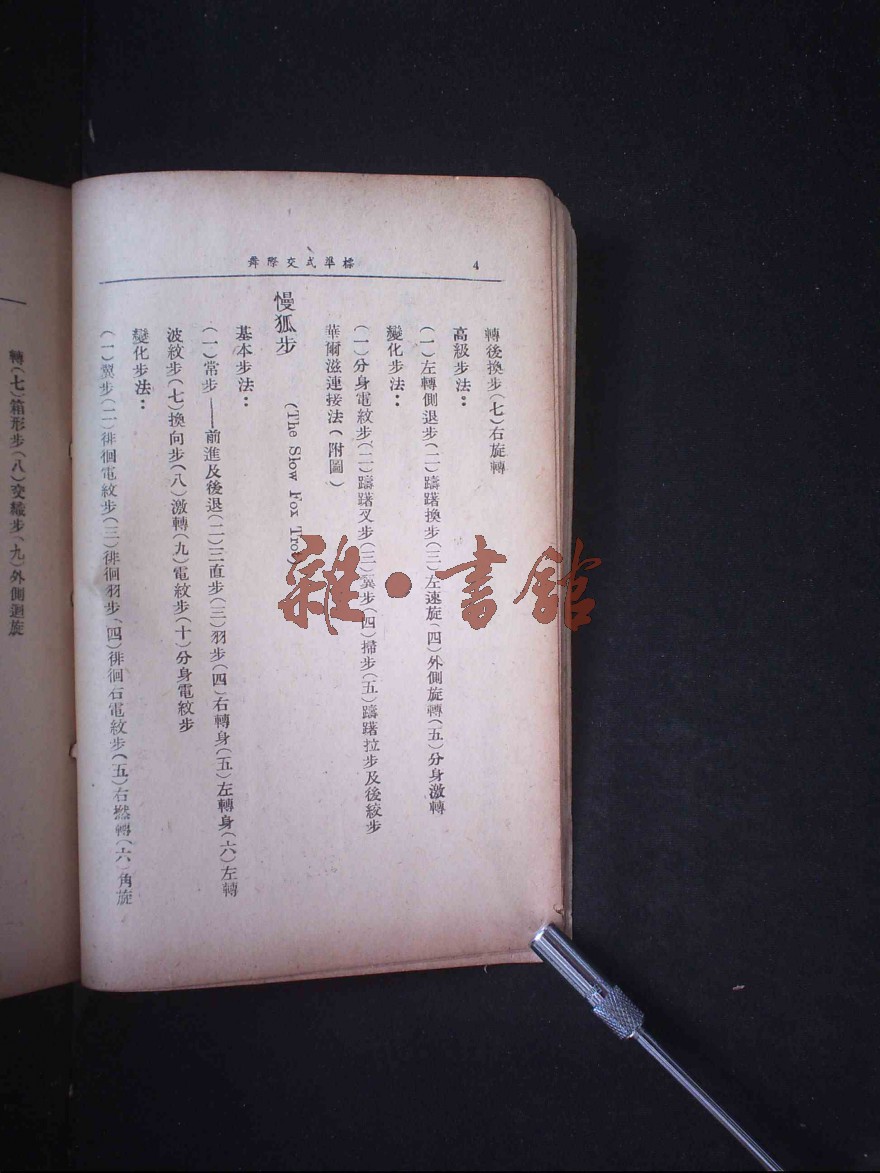 4
標準式交際舞
轉後換步(七)右旋轉
高級步法：
(一)左轉側退步(二)躊躇換步(三)左速旋(四)外側旋轉(五)分身激轉
變化步法：
(一)分身電紋步(二)躊躇叉步(三)翼步(四)掃步(五)躊躇拉步及後絞步
華爾滋連接法(附圖)
慢狐步 (The Slow Fox Trot)
基本步法：
(一)常步——前進及後退(二)三直步(三)羽步(四)右轉身(五)左轉身(六)左轉
波紋步(七)換向步(八)激轉(九)電紋步(十)分身電紋步
變化步法：
(一)翼步(二)徘徊電紋步(三)徘徊羽步(四)徘徊右電紋步(五)右撚轉(六)角旋
轉(七)箱形步(八)交織步(九)外側迴旋
雜·書館